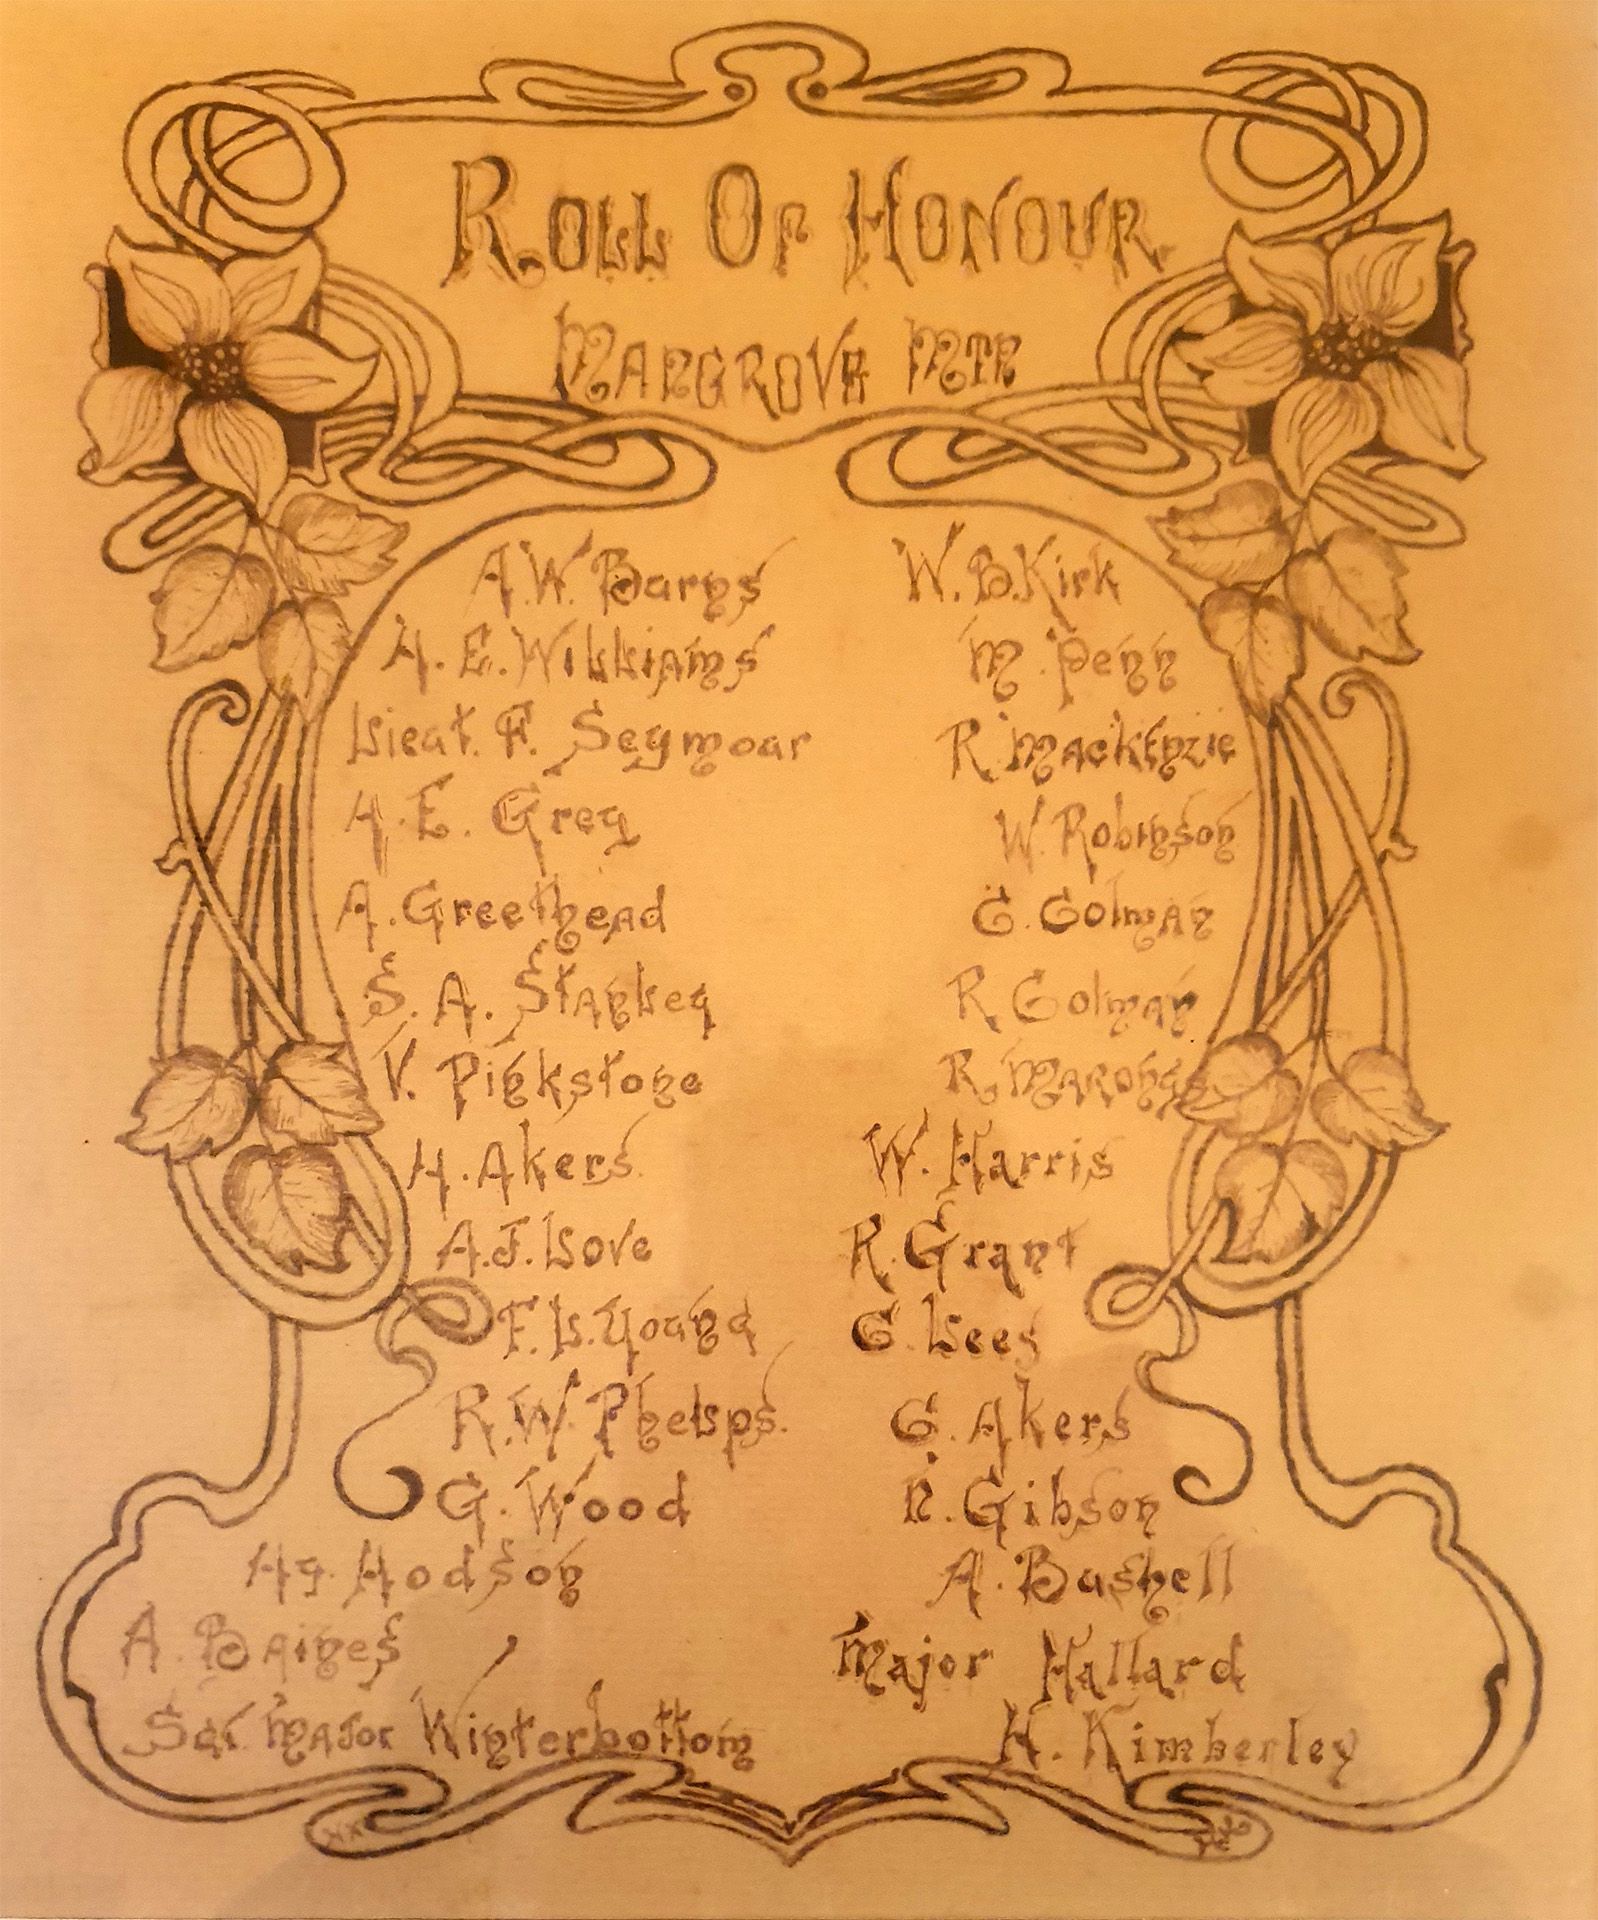 ROLL OF HONOUR
MANGROVE MTN
A.W. Burns
H. E. Williams
Lieut. F. Seymour
H. E. Grey
A. Greethead
S. A. Stanley
V. Pinkstone
H. Akers
A.J. Love
F.L. Young
R.W. Phelps.
G. Wood
Hy. Hodson
A. Baines
Sgt. Major Winterbottom
W. B. Kirk
M. Penn
R. Mackenzie
W. Robinson
C. Colman
R. Colman
R.
W. Harris
R. Grant
G. Lees
G. Akers
N. Gibson
A. Bushell
Major Hallard
H. Kimberley